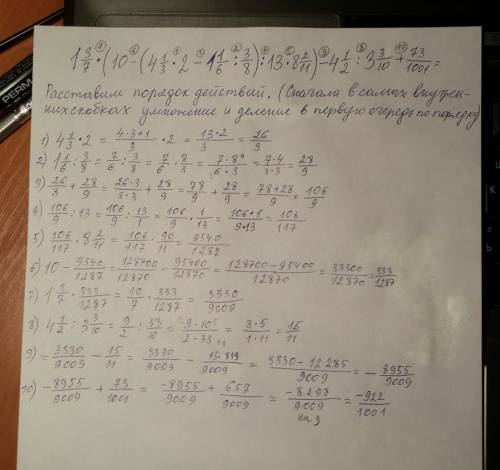 1 3/7 · (10 - (4 1/3 · 2 - 1 1/6 : 3/8) : 13 · 8 2/11) - 4 1/2 : 3 3/10 + 73/1001 =
Расставим порядок действий. (Сначала в самых внутрен-
них скобках умножение и деление в первую очередь по порядку)
1) 4 1/3 · 2 = (4·3+1)/3 · 2 = (13·2)/3 = 26/3
2) 1 1/6 : 3/8 = 7/6 : 3/8 = 7/6 · 8/3 = (7·8 4)/(6·3) = (7·4)/(3·3) = 28/9
3) 26/3 + 28/9 = (26·3)/(3·3) + 28/9 = 78/9 + 28/9 = (78+28)/9 = 106/9
4) 106/9 : 13 = 106/9 : 13/1 = 106/9 · 1/13 = (106·1)/(9·13) = 106/117
5) 106/117 · 8 2/11 = 106/117 · 90/11 = 9540/1287
6) 10 - 9540/1287 = 128700/12870 - 95400/12870 = (128700-95400)/12870 = 33300/12870 = 333/1287
7) 1 3/7 · 333/1287 = 10/7 · 333/1287 = 3330/9009
8) 4 1/2 : 3 3/10 = 9/2 : 33/10 = (9·10 5)/(2·33 11) = (3·5)/(1·11) = 15/11
9) = 3330/9009 - 15/11 = 3330/9009 - 15·819/9009 = (3330-12285)/9009 = - 8955/9009
10) -8955/9009 + 73/1001 = -8955/9009 + 657/9009 = -8298/9009 = -922/1001
на 9
PERM